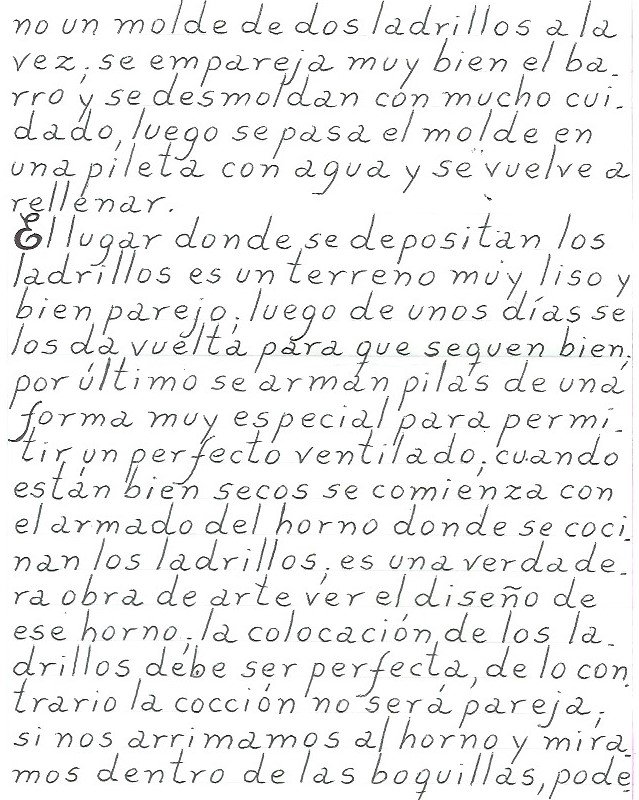 no un molde de dos ladrillos a la
vez; se empareja muy bien el ba-
rro y se desmoldan con mucho cui-
dado, luego se pasa el molde en
una pileta con agua y se vuelve a
rellenar.
El lugar donde se depositan los
ladrillos es un terreno muy liso y
bien parejo; luego de unos días se
los da vuelta para que sequen bien;
por último se arman pilas de una
forma muy especial para permi-
tir un perfecto ventilado; cuando
están bien secos se comienza con
el armado del horno donde se coci-
nan los ladrillos; es una verdade-
ra obra de arte ver el diseño de
ese horno; la colocación de los la-
drillos debe ser perfecta, de lo con
trario la cocción no será pareja;
si nos arrimamos al horno y mira-
mos dentro de las boquillas, pode-